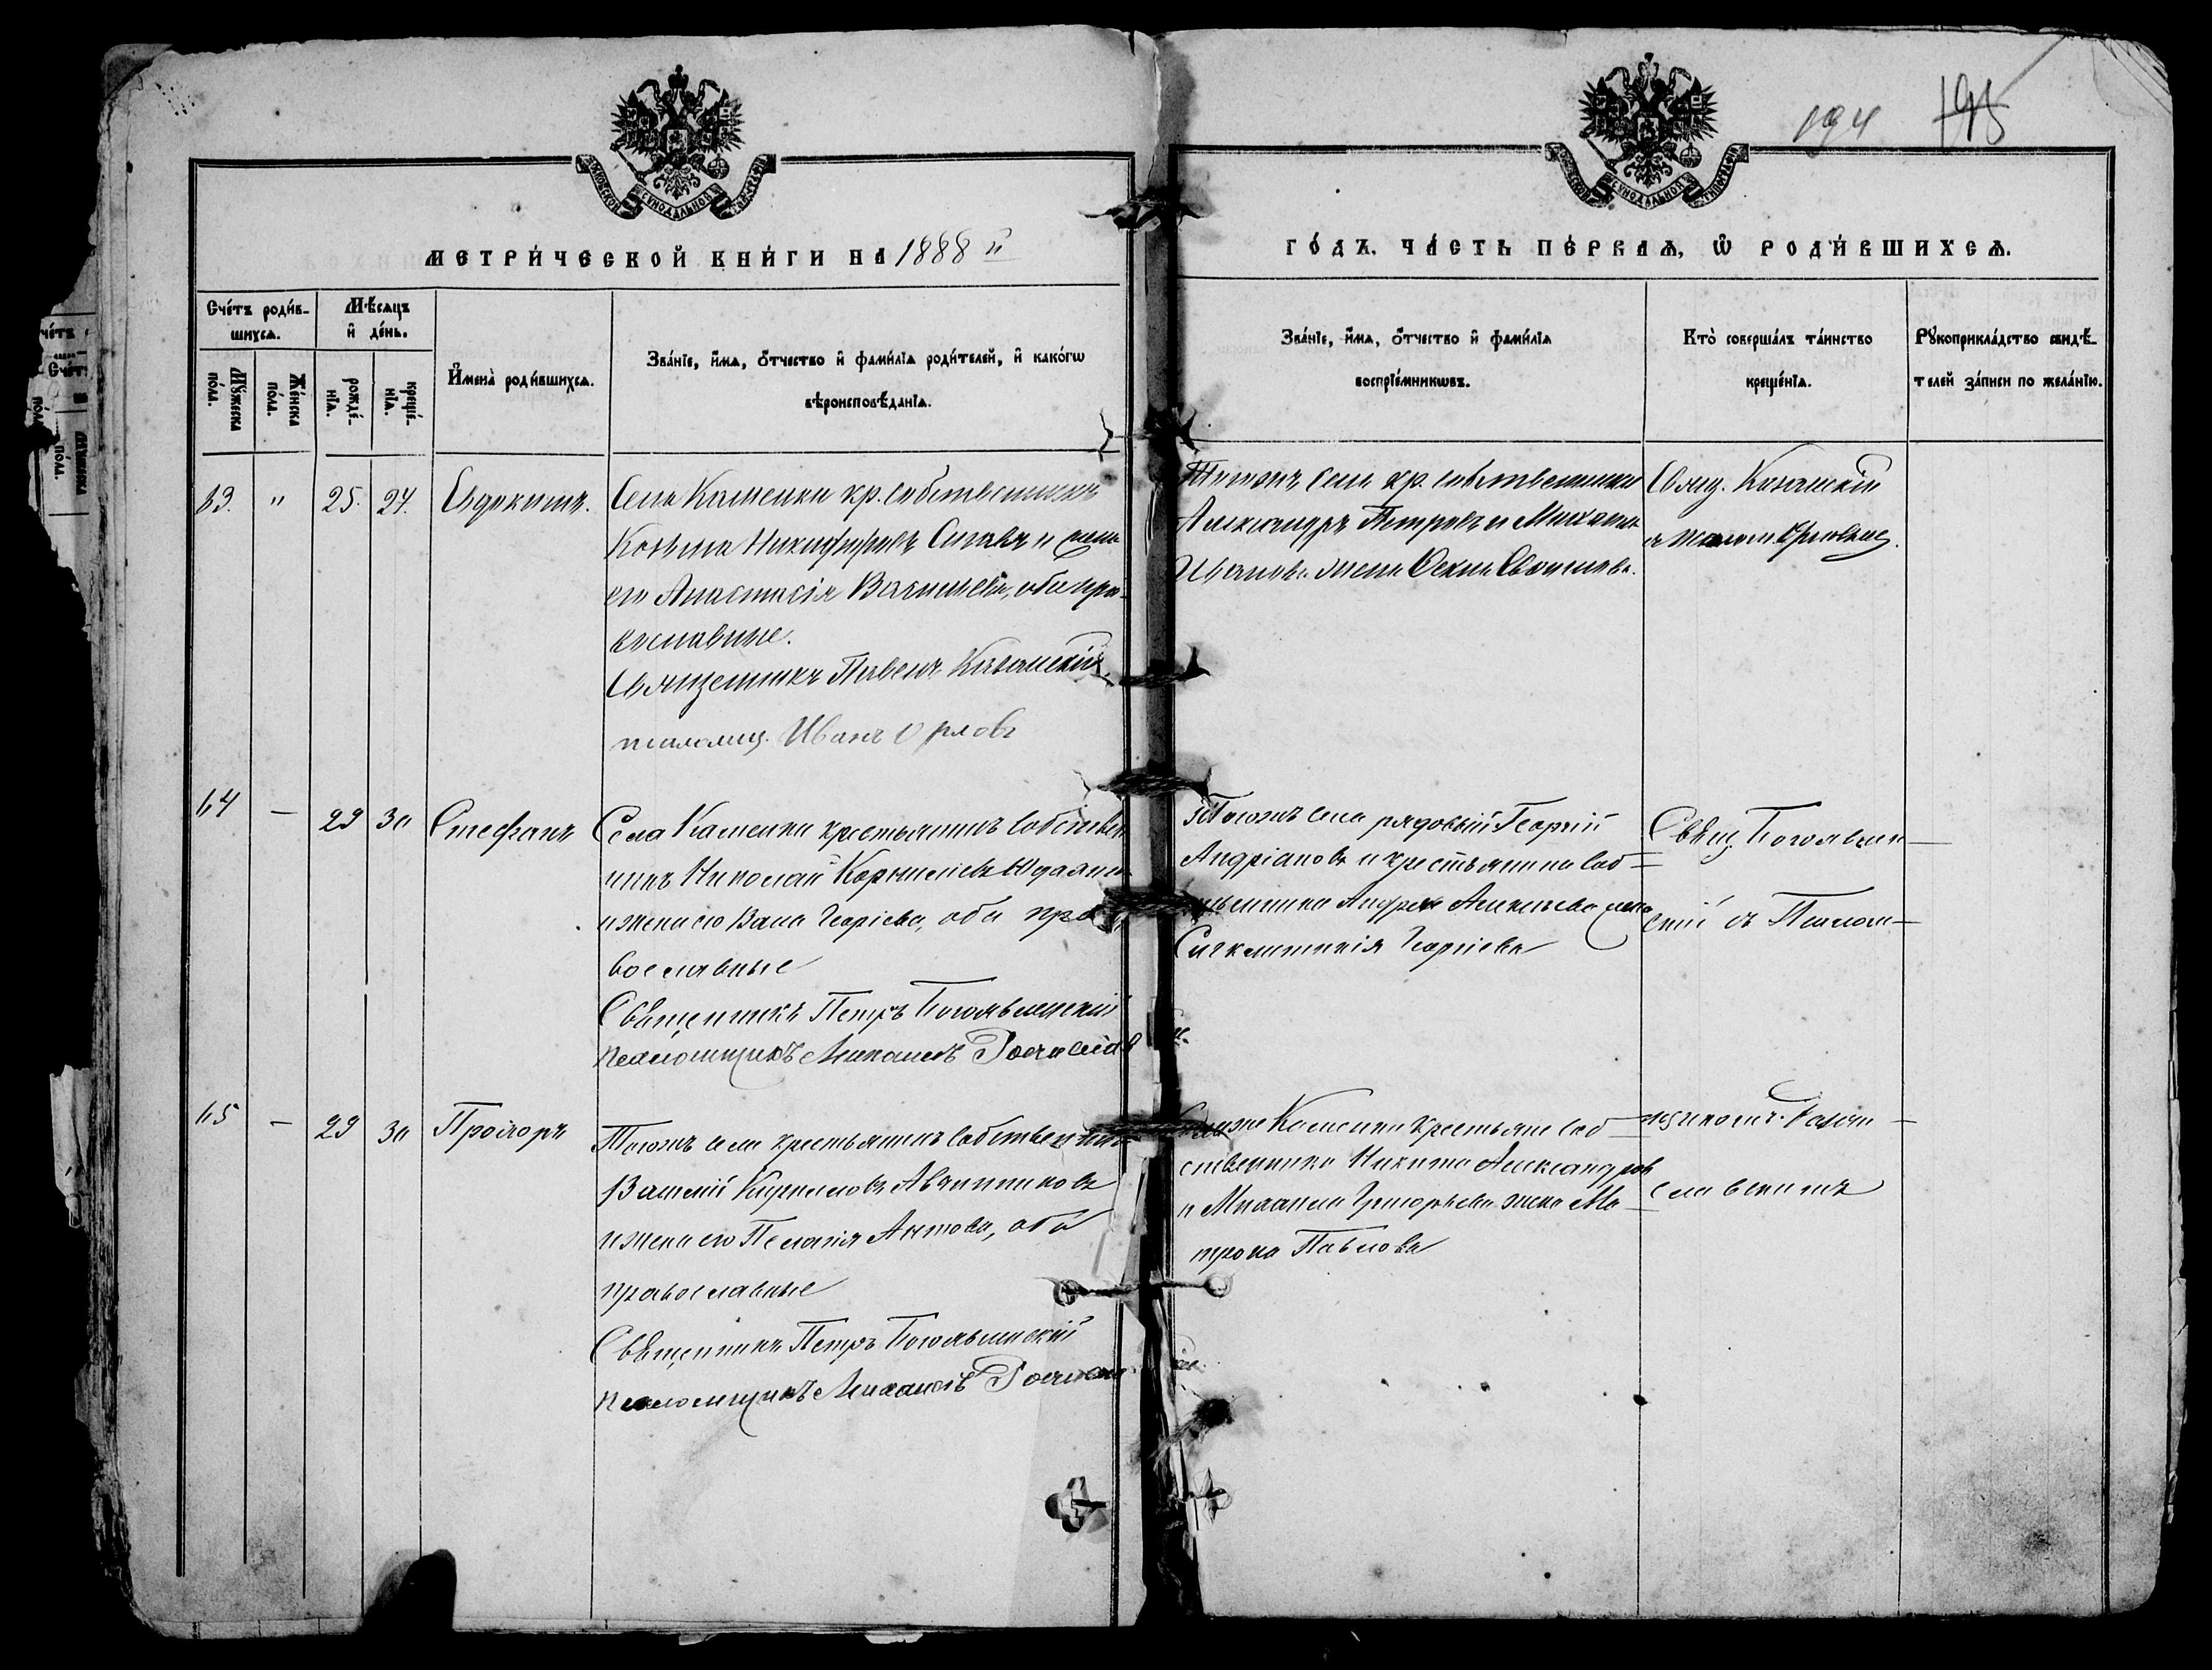 194 195
МЕТРИЧЕСКОЙ КНИГИ НА 1888 й
ГОДЪ. ЧАСТЬ ПЕРВАЯ, Ѽ РОДИВШИХСЯ.
Счетъ родив-
шихся.
Мѣсяцъ
и день.
Мужеска
пола.
Женска
пола.
рожде-
нія.
креще-
нія.
Имена родившихся.
Званіе, имя, отчество и фамилія родителей, и какогѡ
вѣроисповѣданія.
Званіе, имя, отчество и фамилія
воспріемникѡвъ.
Кто совершалъ таинство
крещенія.
Рукоприкладство свидѣ-
телей записи по желанію.
63. " 25. 27. Евдокимъ.
Села Каменки кр. собственникъ
Козьма Никифоровъ и жена
его Анастасія Васильева, оба пра-
вославные.
Священникъ Павелъ Казанскій
псаломщ. Иванъ Орловъ
Тогожъ села кр. собственники
Александръ Петровъ и Михаила
Иванова жена Евсигнѣева.
Свящ. Казанскій
съ псалом. Орловымъ.
64 — 29 30 Стефанъ
Села Каменки крестьянинъ собствен
никъ Николай Корнилiевъ
и жена его Георгіева, оба пра
вославные
Священникъ Петръ Богоявленскій
псаломщикъ Михаилъ
Тогожъ села рядовый Георгій
Андріановъ и крестьянина соб-
ственника Андрея жена
Синклитикія Георгіева
Свящ. Богоявлен-
скій съ Псалом-
65 — 29 30 Прохоръ
Тогожъ села крестьянинъ собственникъ
Василій Кирилловъ
и жена его Пелагія Антонова, оба
православные
Священникъ Петръ Богоявленскій
псаломщикъ Михаилъ
Каменки крестьяне соб-
ственники Никита Александровъ
и Михаила Григорьева жена Ма-
трона Павлова
щикомъ
славскимъ